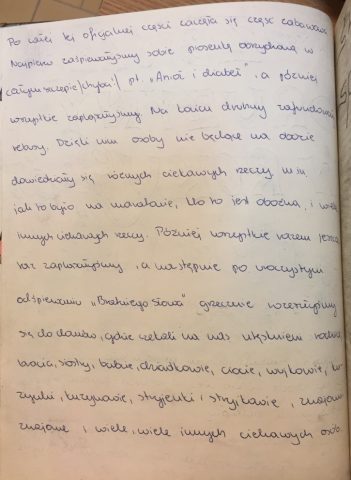 Po całej tej oficjalnej części zaczęła się część zabawowa
Najpierw zaśpiewałyśmy sobie piosenkę odśpiewaną w
całym szczepie (chyba!) pt. "Anioł i diabeł", a później
wszystkie zaplasałyśmy. Na końcu druhny zafundowały
kekasy. Dzięki temu osoby nie będące na obozie
dowiedziały się różnych ciekawych rzeczy m.in.
jak to było na maratonie, kto to jest oboźna, i wiele
innych ciekawych rzeczy. Później wszystkie razem jeszcze
raz zaplasałyśmy, a następnie po uroczystym
odśpiewaniu "Bratniego Słowa" grzecznie
się do domów, gdzie czekali na nas utęsknieni rodzice
bracia, siostry, babcie, dziadkowie, ciocie, wujkowie, ku-
zynki, kuzynowie, stryjenki i stryjkowie, znajomi
znajome i wiele, wiele innych ciekawych osób.